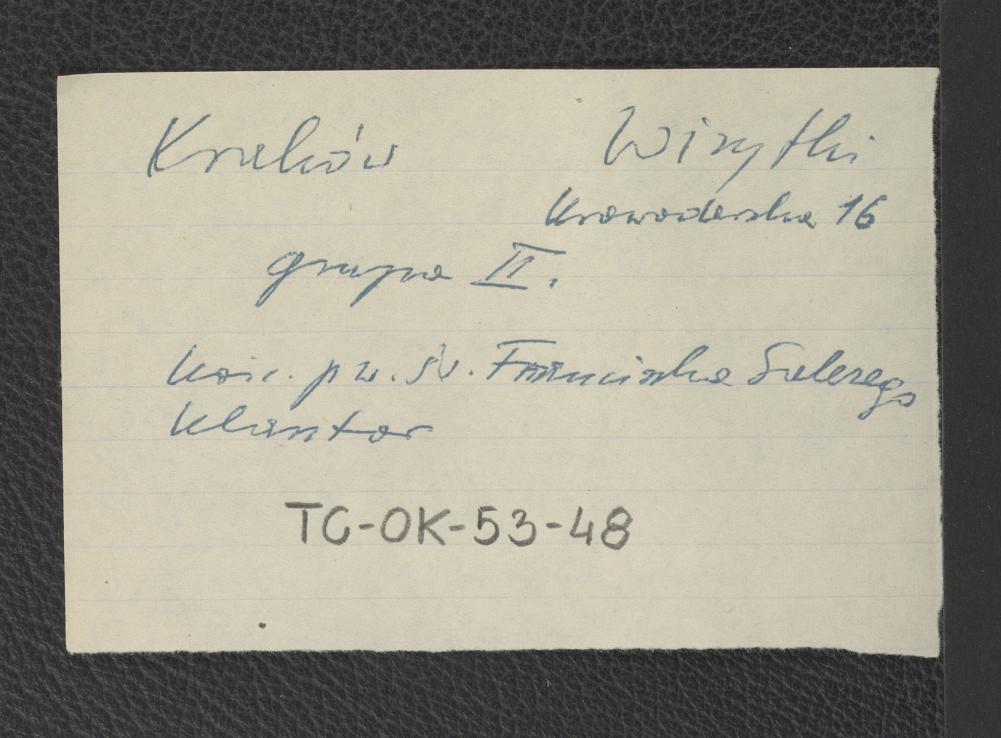 Kraków Wizytki
Krowoderska 16
grupa II.
Kośc. pw. Św. Franciszka Salezego
Klasztor
TC-OK-53-48